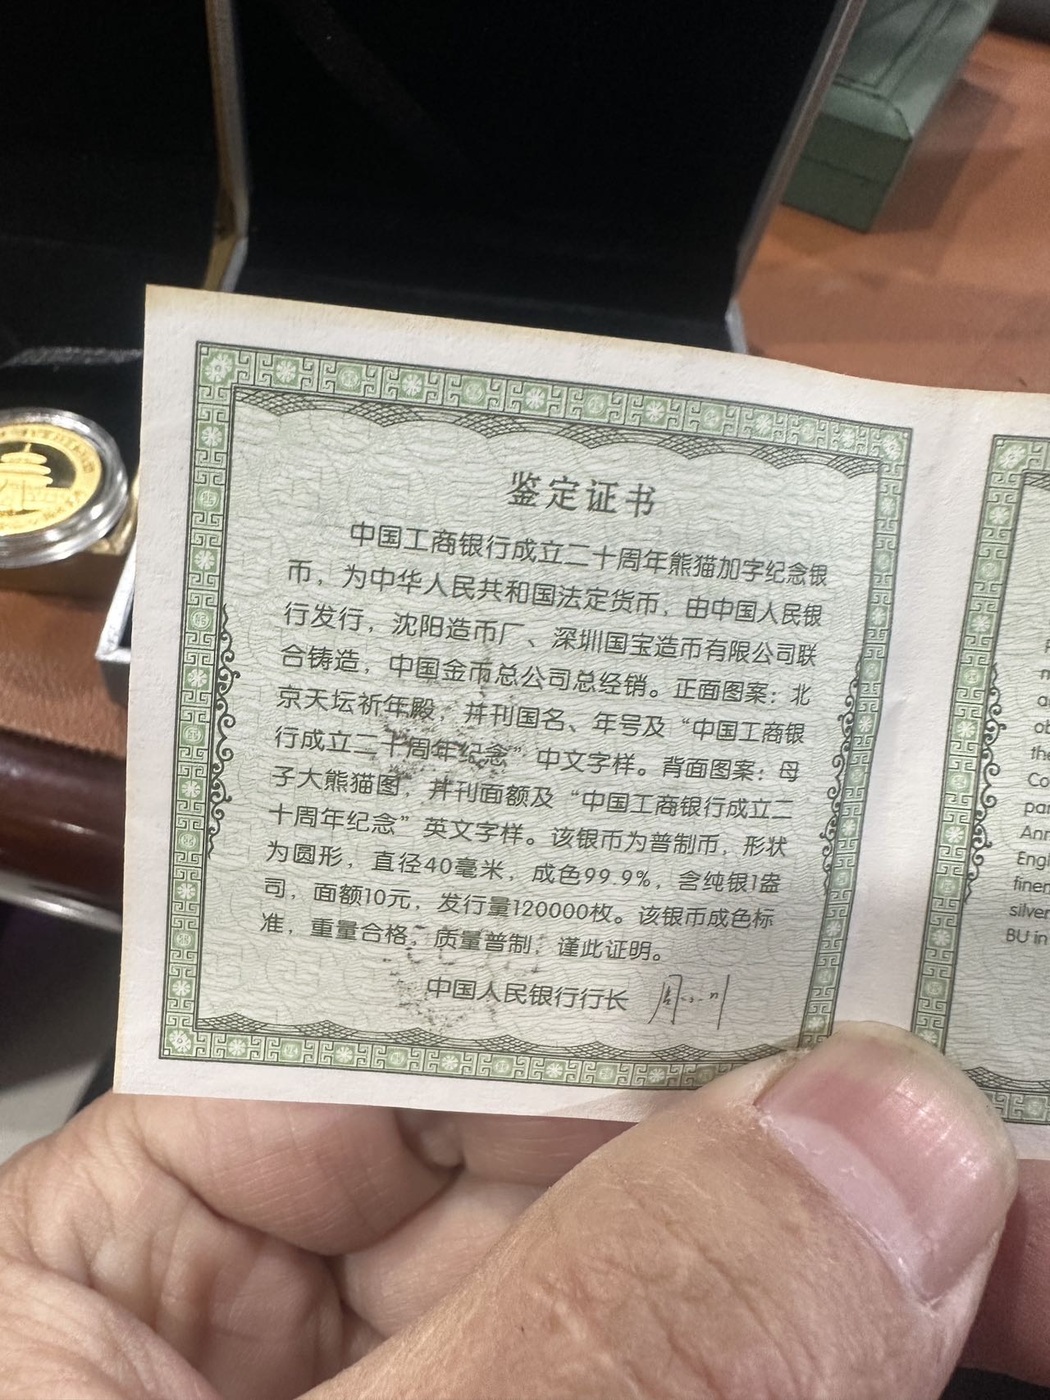 鉴定证书
中国工商银行成立二十周年熊猫加字纪念银
币，为中华人民共和国法定货币，由中国人民银
行发行，沈阳造币厂、深圳国宝造币有限公司联
合铸造，中国金币总公司总经销。正面图案：北
京天坛祈年殿，并刊国名、年号及“中国工商银
行成立二十周年纪念”中文字样。背面图案：母
子大熊猫图，并刊面额及“中国工商银行成立二
十周年纪念”英文字样。该银币为普制币，形状
为圆形，直径40毫米，成色99.9%，含纯银1盎
司，面额10元，发行量120000枚。该银币成色标
准，重量合格，质量普制，谨此证明。
中国人民银行行长
the
Co
par
Ann
Engl
finen
silver
BU in